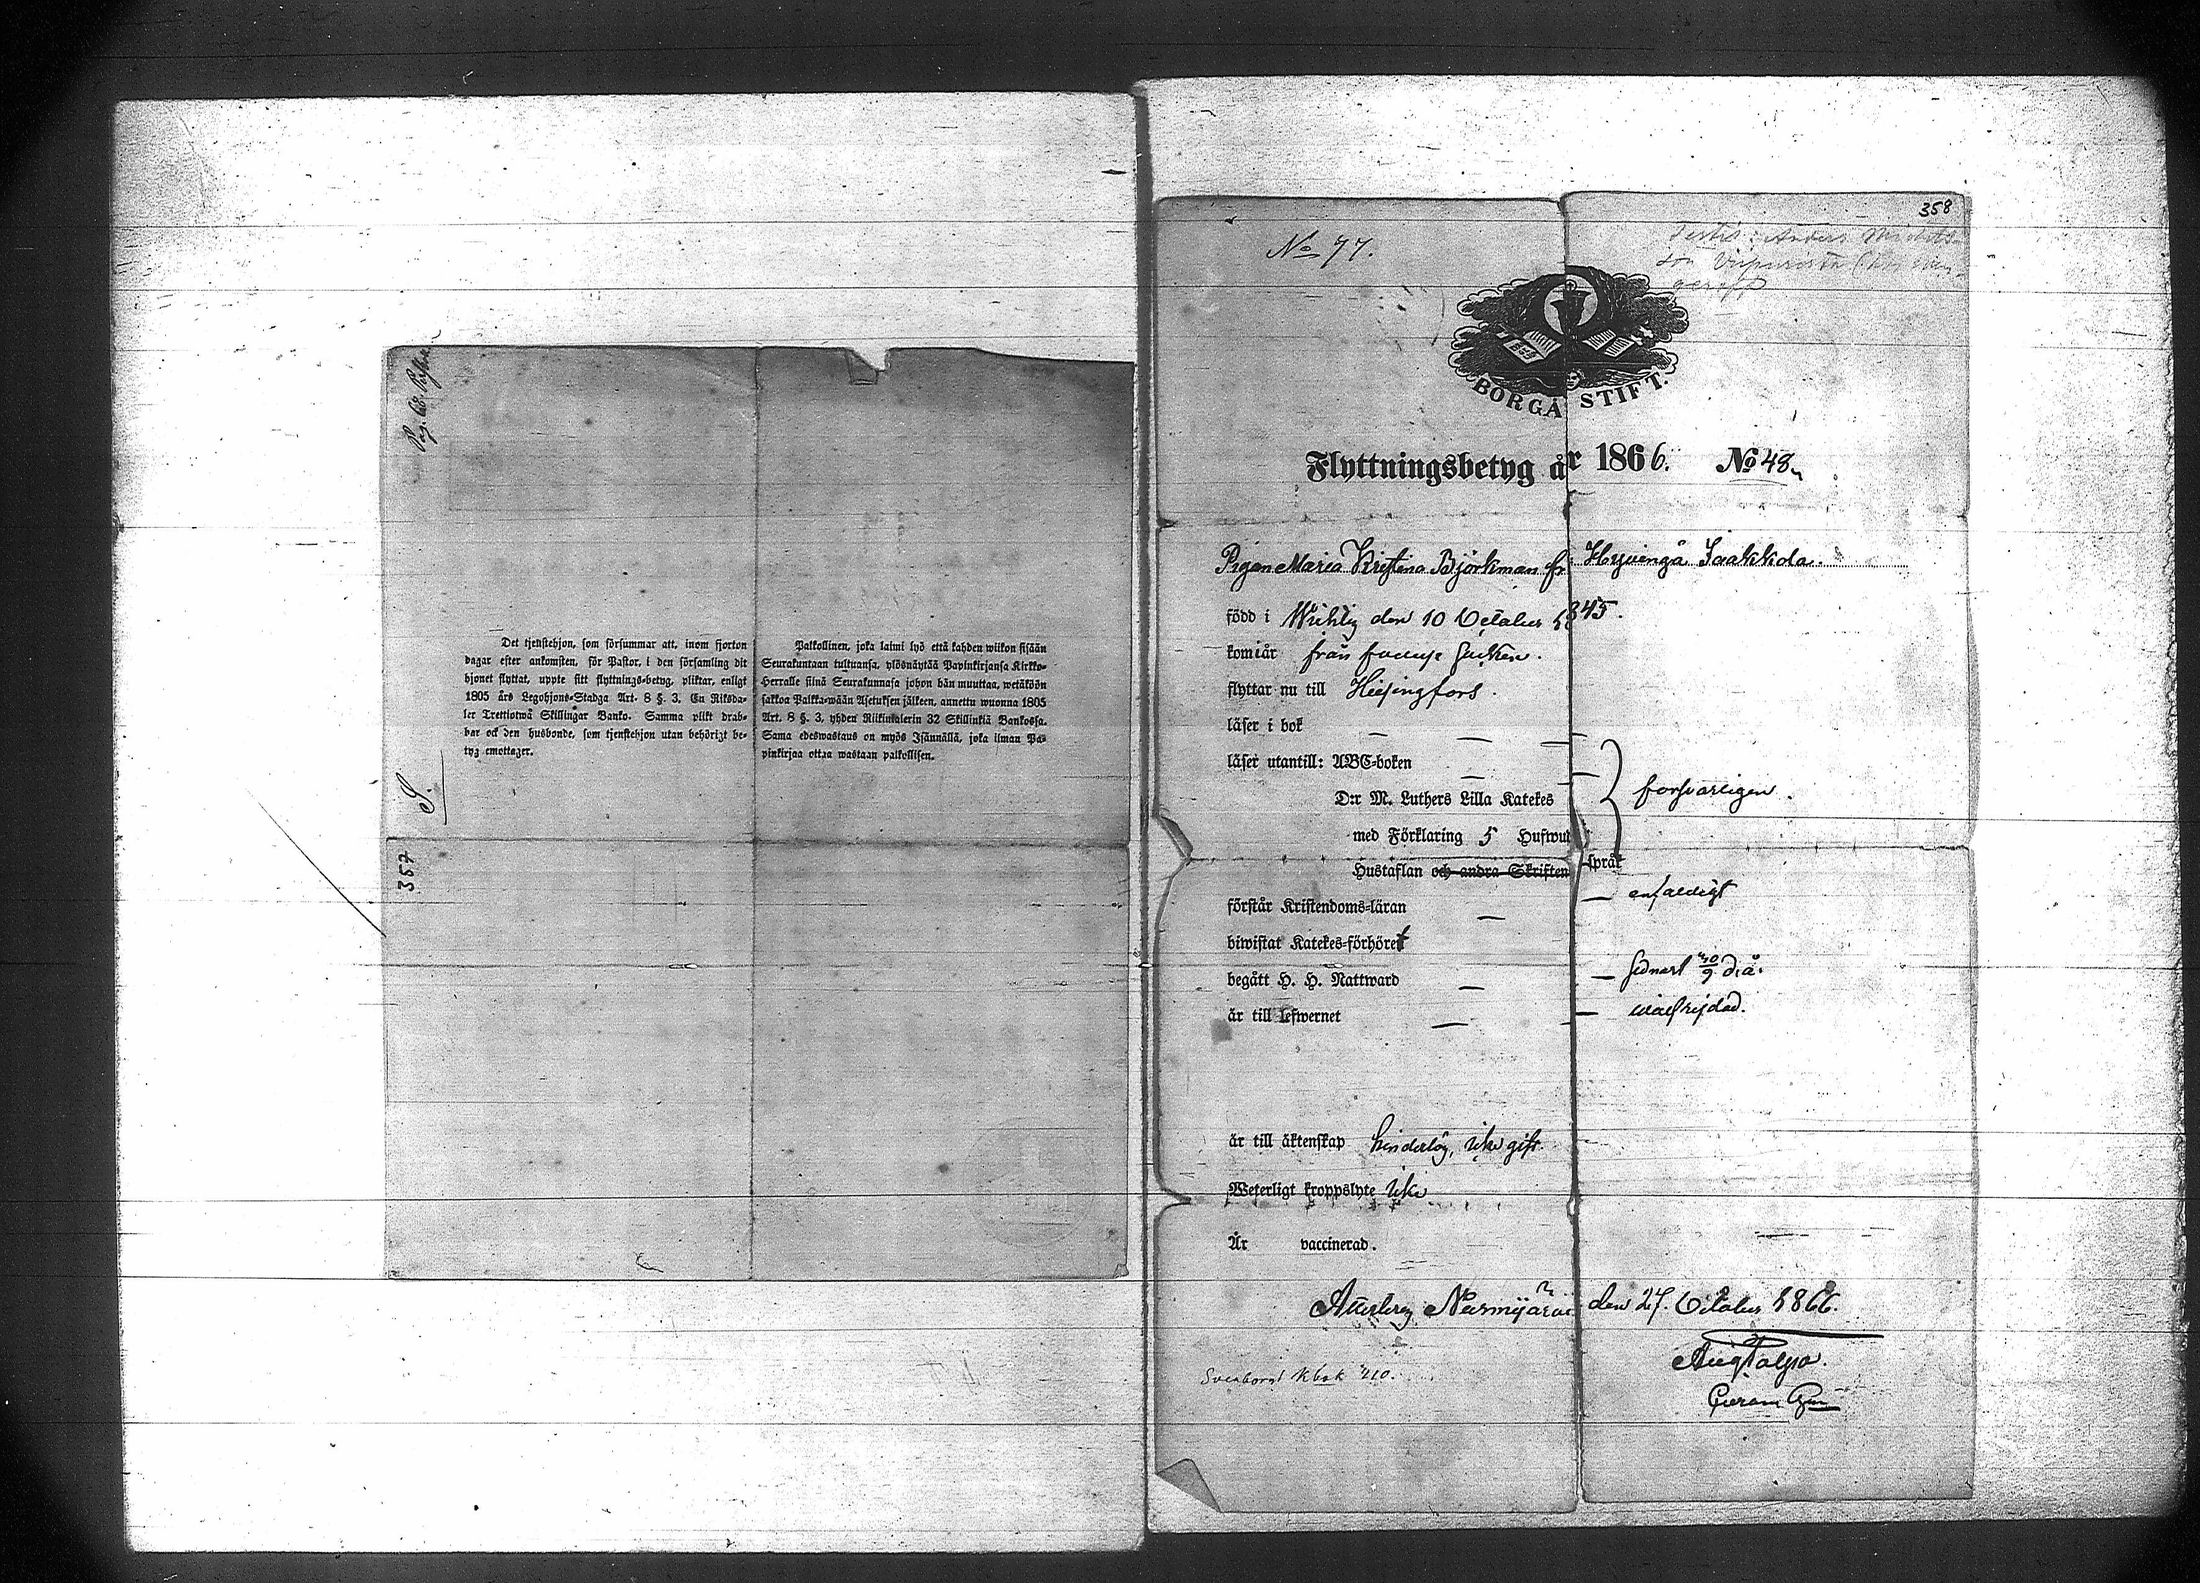 Pag. 68.
S.
357
Det tjenstehjon, som försummar att, inom fjorton
dagar efter ankomsten, för Pastor, i den församling dit
hjonet flyttat, uppte sitt flyttnings-betyg, pliktar, enligt
1805 års Legohjons-Stadga Art. 8 §. 3. En Riksda-
ler Trettiotwå Skillingar Banko. Samma plikt drab-
bar ock den husbonde, som tjenstehjon utan behörigt be-
tyg emottager.
Palkollinen, joka laimi lyö että kahden wiikon sisään
Seurakuntaan tultuansa, ylösnäytää Papinkirjansa Kirkko-
Herralle siinä Seurakunnasa johon hän muuttaa, wetäköön
sakkoa Palkka-wään Asetuksen jälkeen, annettu wuonna 1805
Art. 8 §. 3, yhden Riikintalerin 32 Skillinkiä Bankossa.
Sama edeswastaus on myös Isännällä, joka ilman Pa-
pinkirjaa ottaa wastaan palkollisen.
358
No 77.
Anders
BORGÅ STIFT.
Flyttningsbetyg år 1866. No 48
Pigan Maria Kristina Björkman fr. Hyvingä Jaakkola.
född i Wichtis den 10 October 1845.
kom i år från
flyttar nu till Helsingfors.
läser i bok — — —
läser utantill: ABC-boken — —
D:r M. Luthers Lilla Katekes
försvarligen.
med Förklaring 5 Hufwud
Hustaflan och andra Skriften språk
förstår Kristendoms-läran — — enfaldigt
biwistat Katekes-förhöret
begått H. H. Nattward — — sednast 30/9 d. å.
är till lefwernet — — wälfrejdad.
är till äktenskap hinderlös, icke gift
Weterligt kroppslyte icke
Är vaccinerad.
Attesterar Nurmijärvi den 27. October 1866.
Sveaborgs Kbok 210.